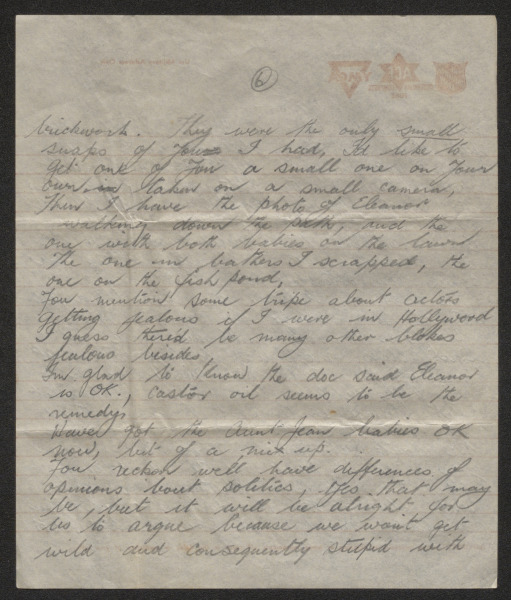 6
brickwork. They were the only small
snaps of you I had, I'd like to
get one of You a small one on Your
own, taken on a small camera,
Then I have the photo of Eleanor
walking down the path, and the
one with both babies on the lawn
The one in bathers I scrapped, the
one on the fish pond,
You mention some tripe about actors
getting jealous if I were in Hollywood
I guess there'd be many other blokes
jealous besides,
Im glad to know the doc said Eleanor
is OK., castor oil seems to be the
remedy.
Have got the Aunt Jean babies OK
now, bit of a mix up.
You reckon well have differences of
opinions bout politics, Yes that may
be, but it will be alright for
us to argue because we wont get
wild and consequently stupid with